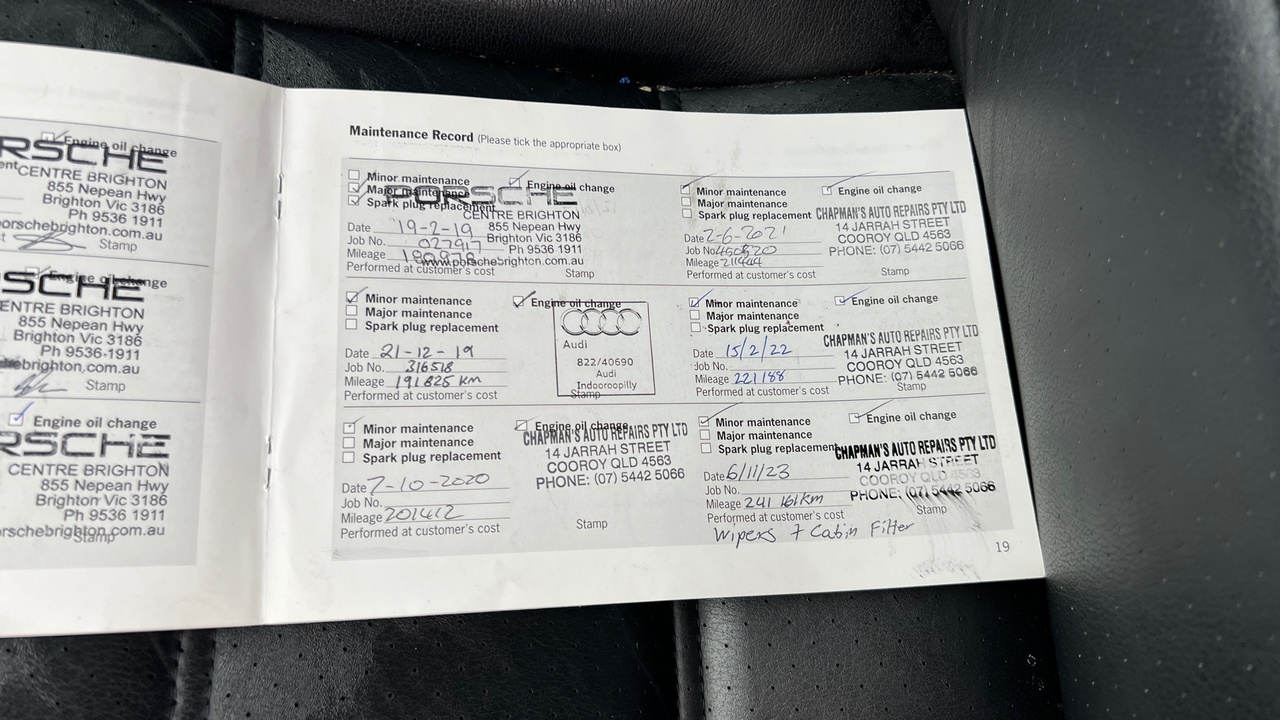 Engine oil change
RSCHE
CENTRE BRIGHTON
855 Nepean Hwy
Brighton Vic 3186
Ph 9536 1911
orschebrighton.com.au
Stamp
Engine oil change
SCHE
CENTRE BRIGHTON
855 Nepean Hwy
Brighton Vic 3186
Ph 9536-1911
Stamp
Engine oil change
RSCHE
CENTRE BRIGHTON
855 Nepean Hwy
Brighton Vic 3186
Ph 9536 1911
orschebrighton.com.au
Stamp
Maintenance Record (Please tick the appropriate box)
Minor maintenance
Major maintenance
Spark plug replacement
Engine oil change
PORSCHE
CENTRE BRIGHTON
855 Nepean Hwy
Brighton Vic 3186
Ph 9536 1911
www.porschebrighton.com.au
Date 19-2-19
Job No. 027917
Mileage
Performed at customer's cost
Stamp
Minor maintenance
Major maintenance
Spark plug replacement
Engine oil change
Audi
822/40690
Audi
Indooroopilly
Date 21-12-19
Job No. 316518
Mileage 191825 KM
Performed at customer's cost
Stamp
Minor maintenance
Major maintenance
Spark plug replacement
Engine oil change
CHAPMAN'S AUTO REPAIRS PTY LTD
14 JARRAH STREET
COOROY QLD 4563
PHONE: (07) 5442 5066
Date 7-10-2020
Job No.
Mileage 201412
Performed at customer's cost
Stamp
Minor maintenance
Major maintenance
Spark plug replacement
Engine oil change
CHAPMAN'S AUTO REPAIRS PTY LTD
14 JARRAH STREET
COOROY QLD 4563
PHONE: (07) 5442 5066
Date 2-6-2021
Job No.
Mileage 211444
Performed at customer's cost
Stamp
Minor maintenance
Major maintenance
Spark plug replacement
Engine oil change
CHAPMAN'S AUTO REPAIRS PTY LTD
14 JARRAH STREET
COOROY QLD 4563
PHONE: (07) 5442 5066
Date 15/2/22
Job No.
Mileage 221188
Performed at customer's cost
Stamp
Minor maintenance
Major maintenance
Spark plug replacement
Engine oil change
CHAPMAN'S AUTO REPAIRS PTY LTD
14 JARRAH STREET
COOROY QLD 4563
PHONE: (07) 5442 5066
Date 6/11/23
Job No.
Mileage 241 161km
Performed at customer's cost
Stamp
Wipers + Cabin Filter
19